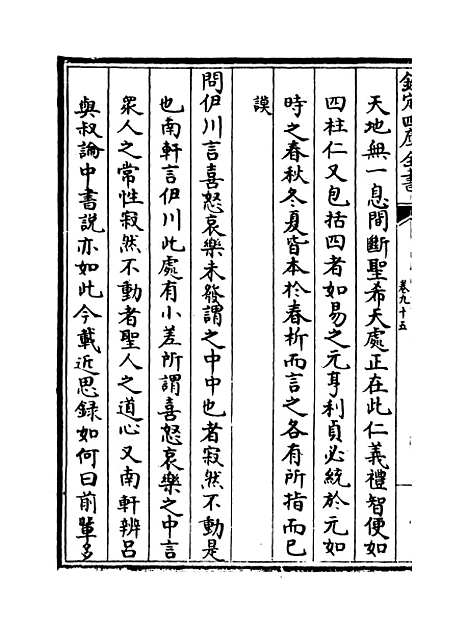 欽定四庫全書
卷九十五
天地無一息間斷聖希天處正在此仁義禮智便如
四柱仁又包括四者如易之元亨利貞必統於元如
時之春秋冬夏皆本於春析而言之各有所指而已
謨
問伊川言喜怒哀樂未發謂之中中也者寂然不動是
也南軒言伊川此處有小差所謂喜怒哀樂之中言
衆人之常性寂然不動者聖人之道心又南軒辨吕
與叔論中書說亦如此今載近思録如何曰前軰多